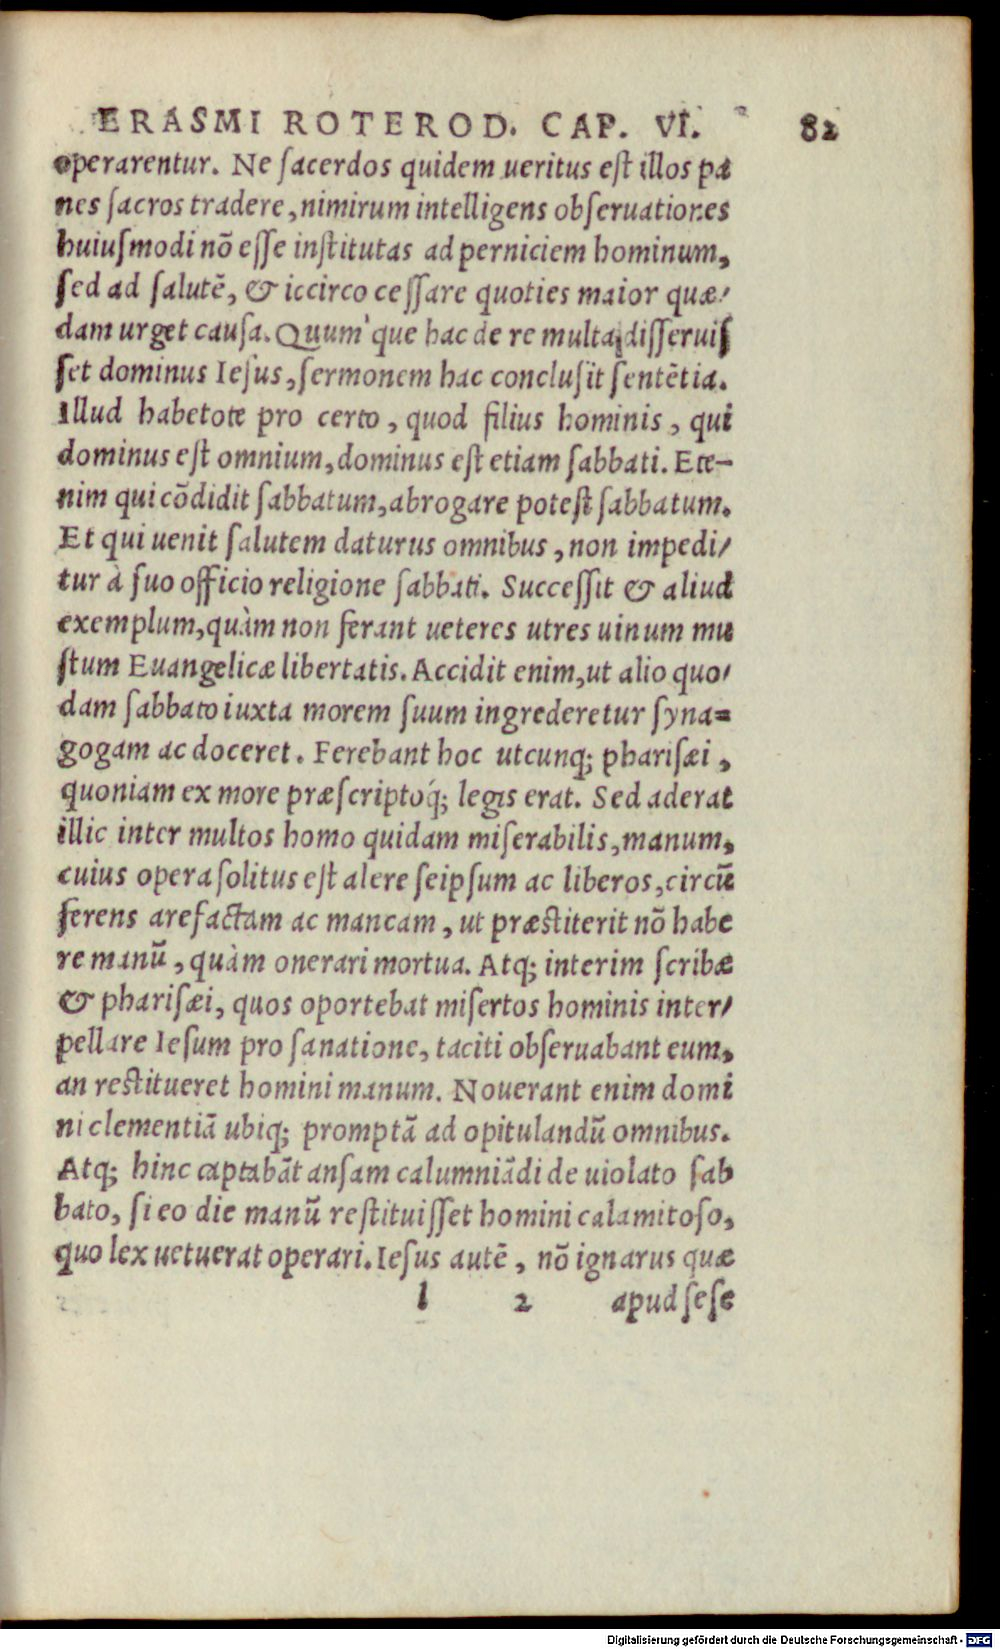 ERASMI ROTEROD. CAP. VI. 82
operarentur. Ne ſacerdos quidem ueritus eſt illos pa
nes ſacros tradere, nimirum intelligens obſeruationes
huiuſmodi nō eſſe inſtitutas ad perniciem hominum,
ſed ad ſalutē, & iccirco ceſſare quoties maior quæ/
dam urget cauſa. Quum'que hac de re multa diſſeruiſ
ſet dominus Ieſus, ſermonem hac concluſit ſentētia.
Illud habetote pro certo, quod filius hominis, qui
dominus eſt omnium, dominus eſt etiam ſabbati. Ete-
nim qui cōdidit ſabbatum, abrogare poteſt ſabbatum.
Et qui uenit ſalutem daturus omnibus, non impedi/
tur à ſuo officio religione ſabbati. Succeſſit & aliud
exemplum, quàm non ferant ueteres utres uinum mu
ſtum Euangelicæ libertatis. Accidit enim, ut alio quo/
dam ſabbato iuxta morem ſuum ingrederetur ſyna=
gogam ac doceret. Ferebant hoc utcunq; phariſæi,
quoniam ex more præſcriptoq́; legis erat. Sed aderat
illic inter multos homo quidam miſerabilis, manum,
cuius opera ſolitus eſt alere ſeipſum ac liberos, circū
ferens arefactam ac mancam, ut præſtiterit nō habe
re manū, quàm onerari mortua. Atq; interim ſcribæ
& phariſæi, quos oportebat miſertos hominis inter/
pellare Ieſum pro ſanatione, taciti obſeruabant eum,
an reſtitueret homini manum. Nouerant enim domi
ni clementiā ubiq; promptā ad opitulandū omnibus.
Atq; hinc captabāt anſam calumniādi de uiolato ſab
bato, ſi eo die manū reſtituiſſet homini calamitoſo,
quo lex uetuerat operari. Ieſus autē, nō ignarus quæ
l 2 apud ſeſe
Digitalisierung gefördert durch die Deutsche Forschungsgemeinschaft - DFG